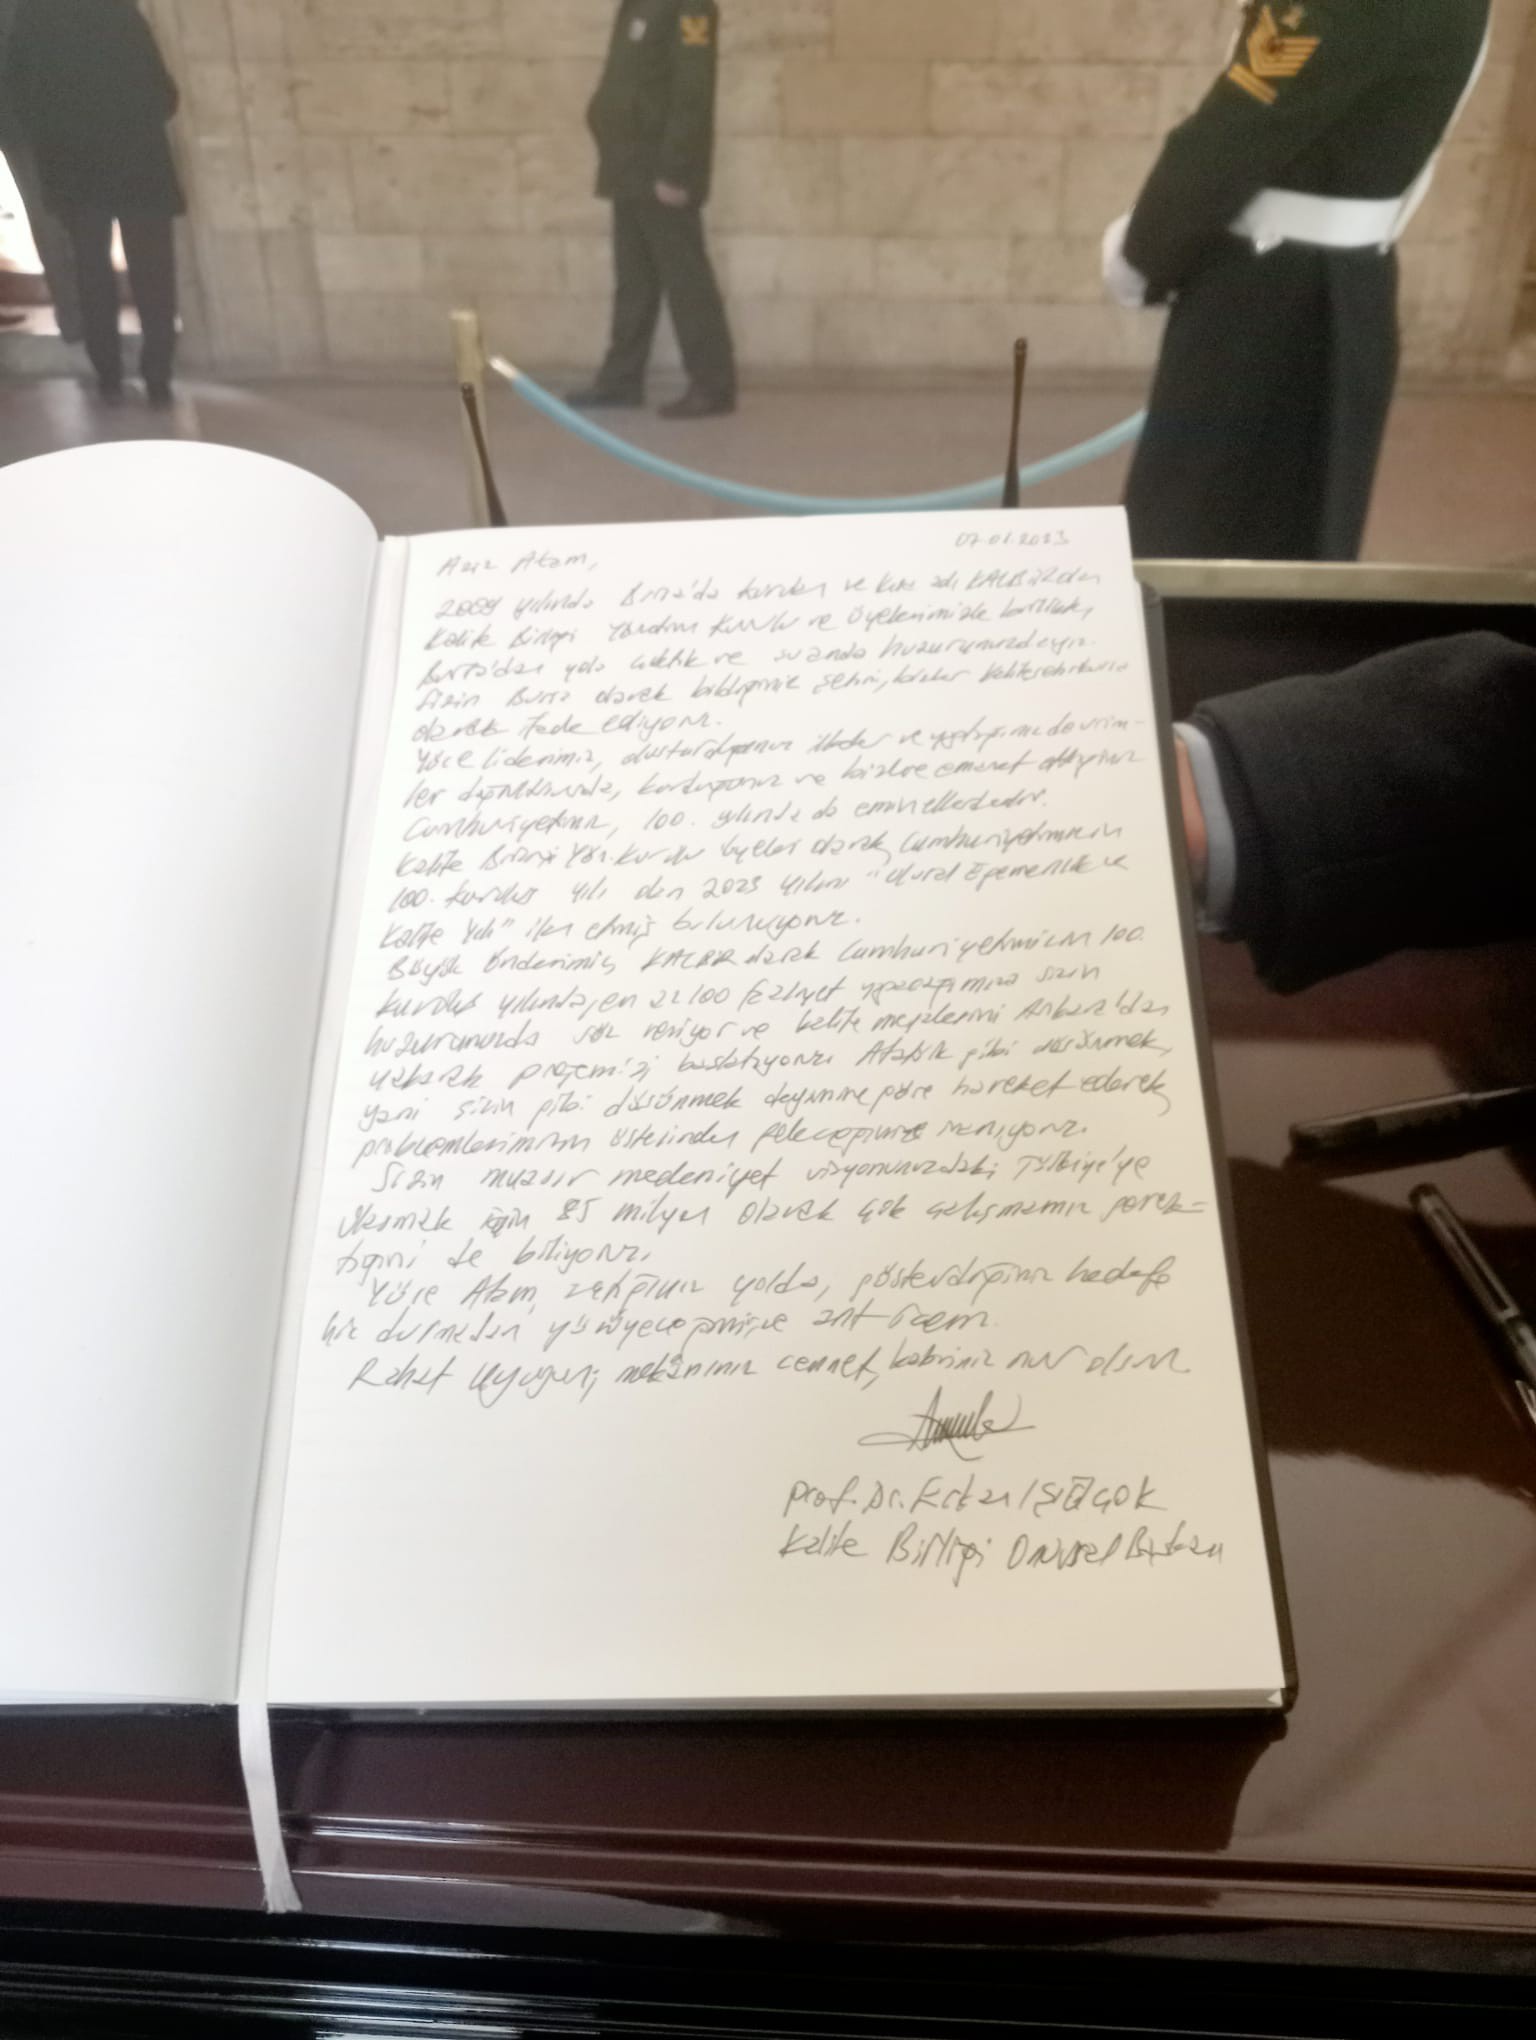 07.01.2023
Aziz Atam,
2009 yılında Bursa'da kurulan ve kısa adı KALBİR olan
Kalite Birliği Yönetim Kurulu ve üyelerimizle birlikte,
Bursa'dan yola çıktık ve şu anda huzurunuzdayız.
Sizin Bursa olarak bildiğiniz şehri, bizler kalite şehri Bursa
olarak ifade ediyoruz.
Yüce liderimiz, oluşturduğunuz ilkeler ve yaptığınız devrim-
ler doğrultusunda, kurduğunuz ve bizlere emanet ettiğiniz
Cumhuriyetimiz, 100. yılında da emin ellerdedir.
Kalite Birliği Yön. Kurulu üyeler olarak, Cumhuriyetimizin
100. kuruluş yılı olan 2023 yılını "Ulusal Egemenlik ve
Kalite Yılı" ilan etmiş bulunuyoruz.
Büyük önderimiz, KALBİR olarak Cumhuriyetimizin 100.
kuruluş yılında, en az 100 faaliyet yapacağımıza sizin
huzurunuzda söz veriyor ve kalite meşalelerini Ankara'dan
yakarak projemizi başlatıyoruz. Atatürk gibi düşünmek,
yani sizin gibi düşünmek deyimine göre hareket ederek,
problemlerimizin üstesinden geleceğimize inanıyoruz.
Sizin muasır medeniyet vizyonunuzdaki Türkiye'ye
ulaşmak için 85 milyon olarak çok çalışmamız gerek-
tiğini de biliyoruz.
Yüce Atam, açtığınız yolda, gösterdiğiniz hedefe
hiç durmadan yürüyeceğimize ant içeriz.
Rahat uyuyun, mekânınız cennet, kabriniz nur olsun.
Prof. Dr. Erkan IŞIĞIÇOK
Kalite Birliği Onursal Başkanı